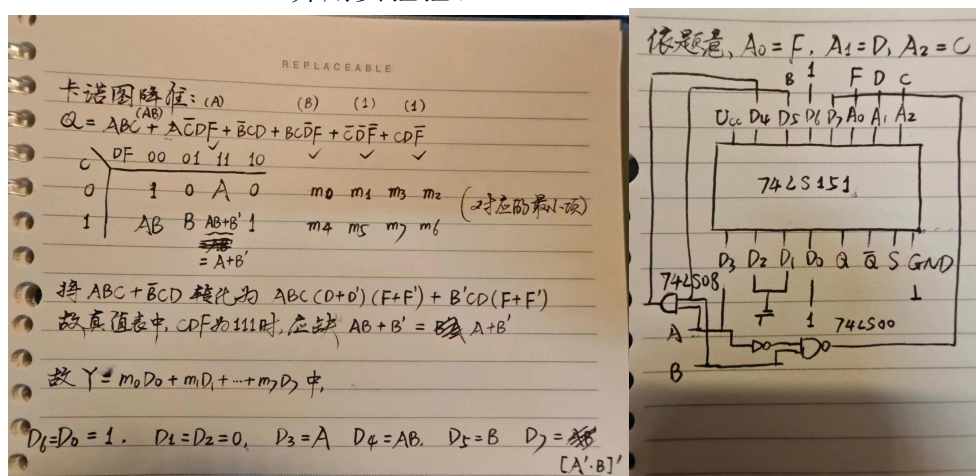 REPLACEABLE
卡诺图降维: (A) (B) (1) (1)
(AB)
Q = ABC + AC̅DF + B̅CD + BCD̅F + C̅D̅F̅ + CDF̅
C DF 00 01 11 10
0 1 0 A 0 m0 m1 m3 m2
1 AB B AB+B' 1 m4 m5 m7 m6
(对应的最小项)
= A+B'
将 ABC + B̅CD 转化为 ABC(D+D')(F+F') + B'CD(F+F')
故真值表中, CDF为111时, 应缺 AB+B' = A+B'
故 Y = m0D0 + m1D1 + … + m7D7 中,
D6=D0 = 1. D1=D2=0, D3=A D4=AB. D5=B D7=
[A'·B]'
依题意, A0=F, A1=D, A2=C
B 1 F D C
Ucc D4 D5 D6 D7 A0 A1 A2
74LS151
D3 D2 D1 D0 Q Q̅ S GND
74LS08
1 74LS00
A
B